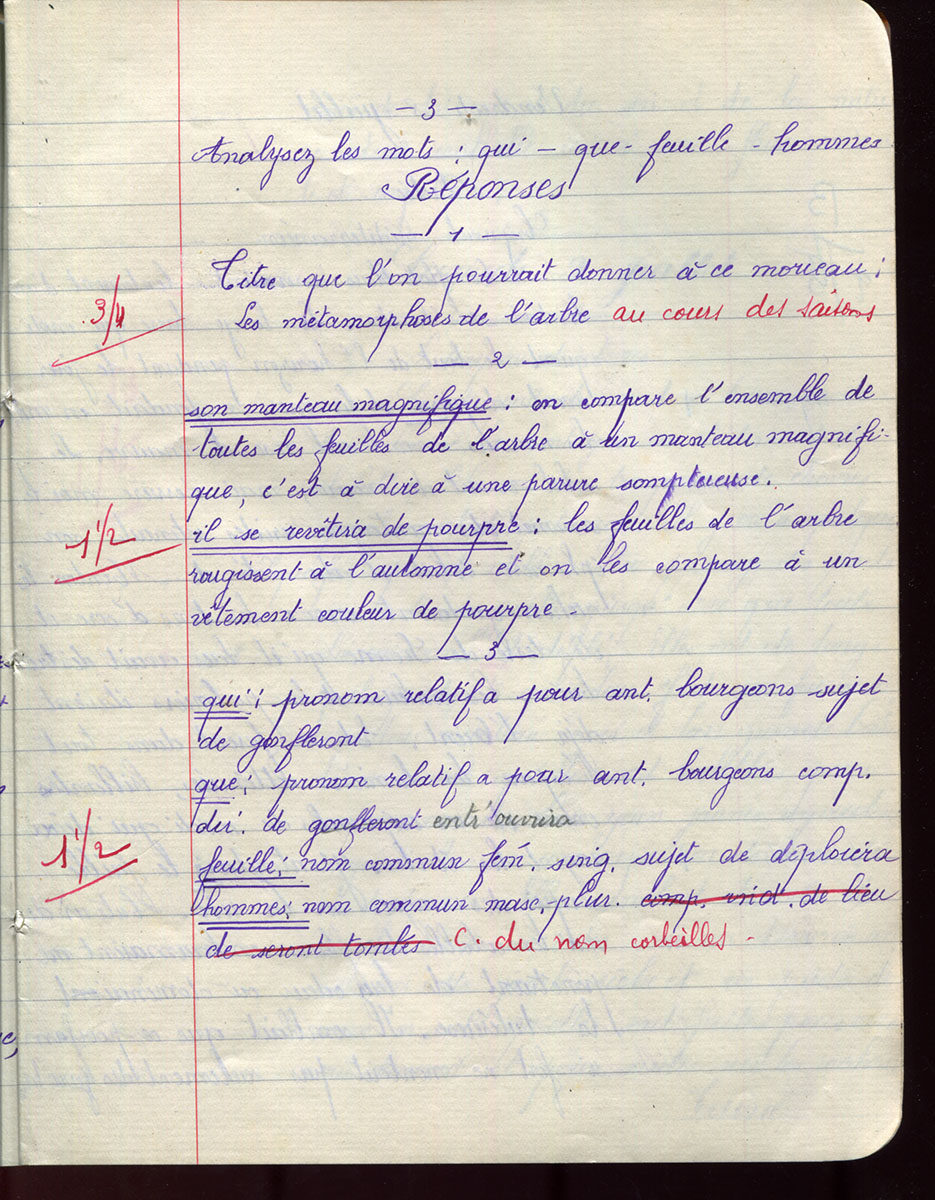 — 3 —
Analysez les mots : qui – que – feuille – hommes
Réponses
— 1 —
Titre que l'on pourrait donner à ce morceau :
3/4
Les métamorphoses de l'arbre au cours des saisons
— 2 —
son manteau magnifique : on compare l'ensemble de
toutes les feuilles de l'arbre à un manteau magnifi-
que, c'est à dire à une parure somptueuse.
1 1/2
il se revêtira de pourpre : les feuilles de l'arbre
rougissent à l'automne et on les compare à un
vêtement couleur de pourpre.
— 3 —
qui : pronom relatif a pour ant. bourgeons sujet
de gonfleront
que : pronom relatif a pour ant. bourgeons comp.
dir. de gonfleront entr'ouvrira
1 1/2
feuille : nom commun fém. sing. sujet de déploiera
hommes : nom commun masc. plur. comp. ind. de lieu
de seront tombés C. du nom corbeilles.